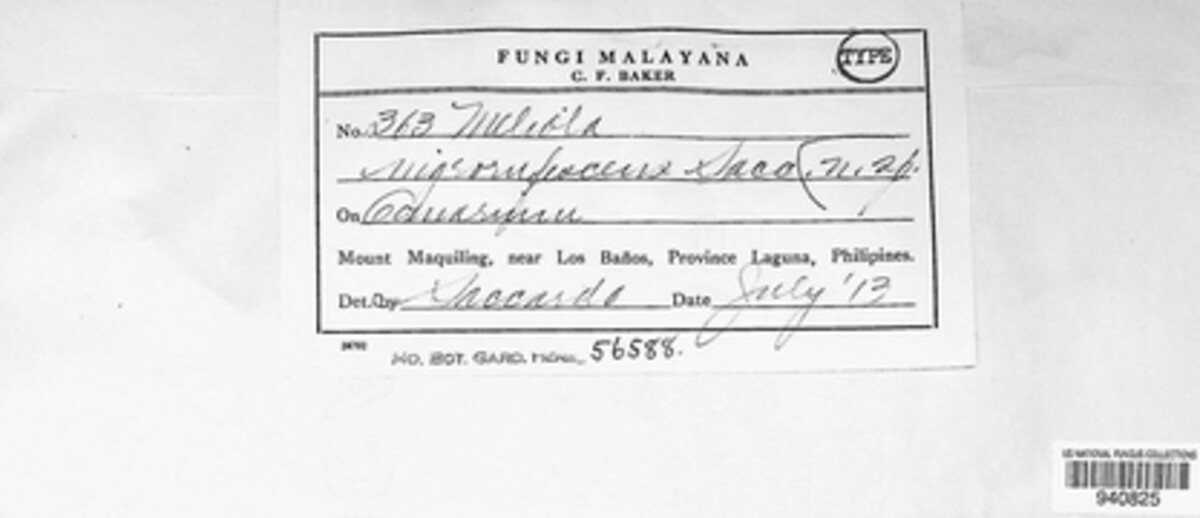 FUNGI MALAYANA
TYPE
C. F. BAKER
No. 363 Meliola
nigrorufescens Sacc. (n. sp.
On Canarium
Mount Maquiling, near Los Baños, Province Laguna, Philipines.
Det. by Saccardo Date July '13
MO. BOT. GARD. HERB. 56588.
US NATIONAL FUNGUS COLLECTIONS
940825